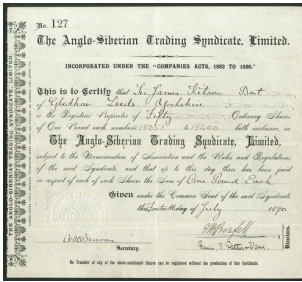 No. 127
The Anglo-Siberian Trading Syndicate, Limited.
INCORPORATED UNDER THE "COMPANIES ACTS, 1862 TO 1886."
This is to Certify that Sir James Kitson Bart
of Gledhow Leeds Yorkshire
is the Registered Proprietor of Fifty Ordinary Shares
of One Pound each numbered 15351 to 15400 both inclusive, in
The Anglo-Siberian Trading Syndicate, Limited,
subject to the Memorandum of Association and the Rules and Regulations
of the said Syndicate, and that up to this day there has been paid
in respect of each of such Shares the Sum of One Pound Each
Given under the Common Seal of the said Syndicate
this day of July 1890.
Secretary.
No Transfer of any of the above-mentioned Shares can be registered without the production of this Certificate.
THE ANGLO-SIBERIAN TRADING SYNDICATE, LIMITED.